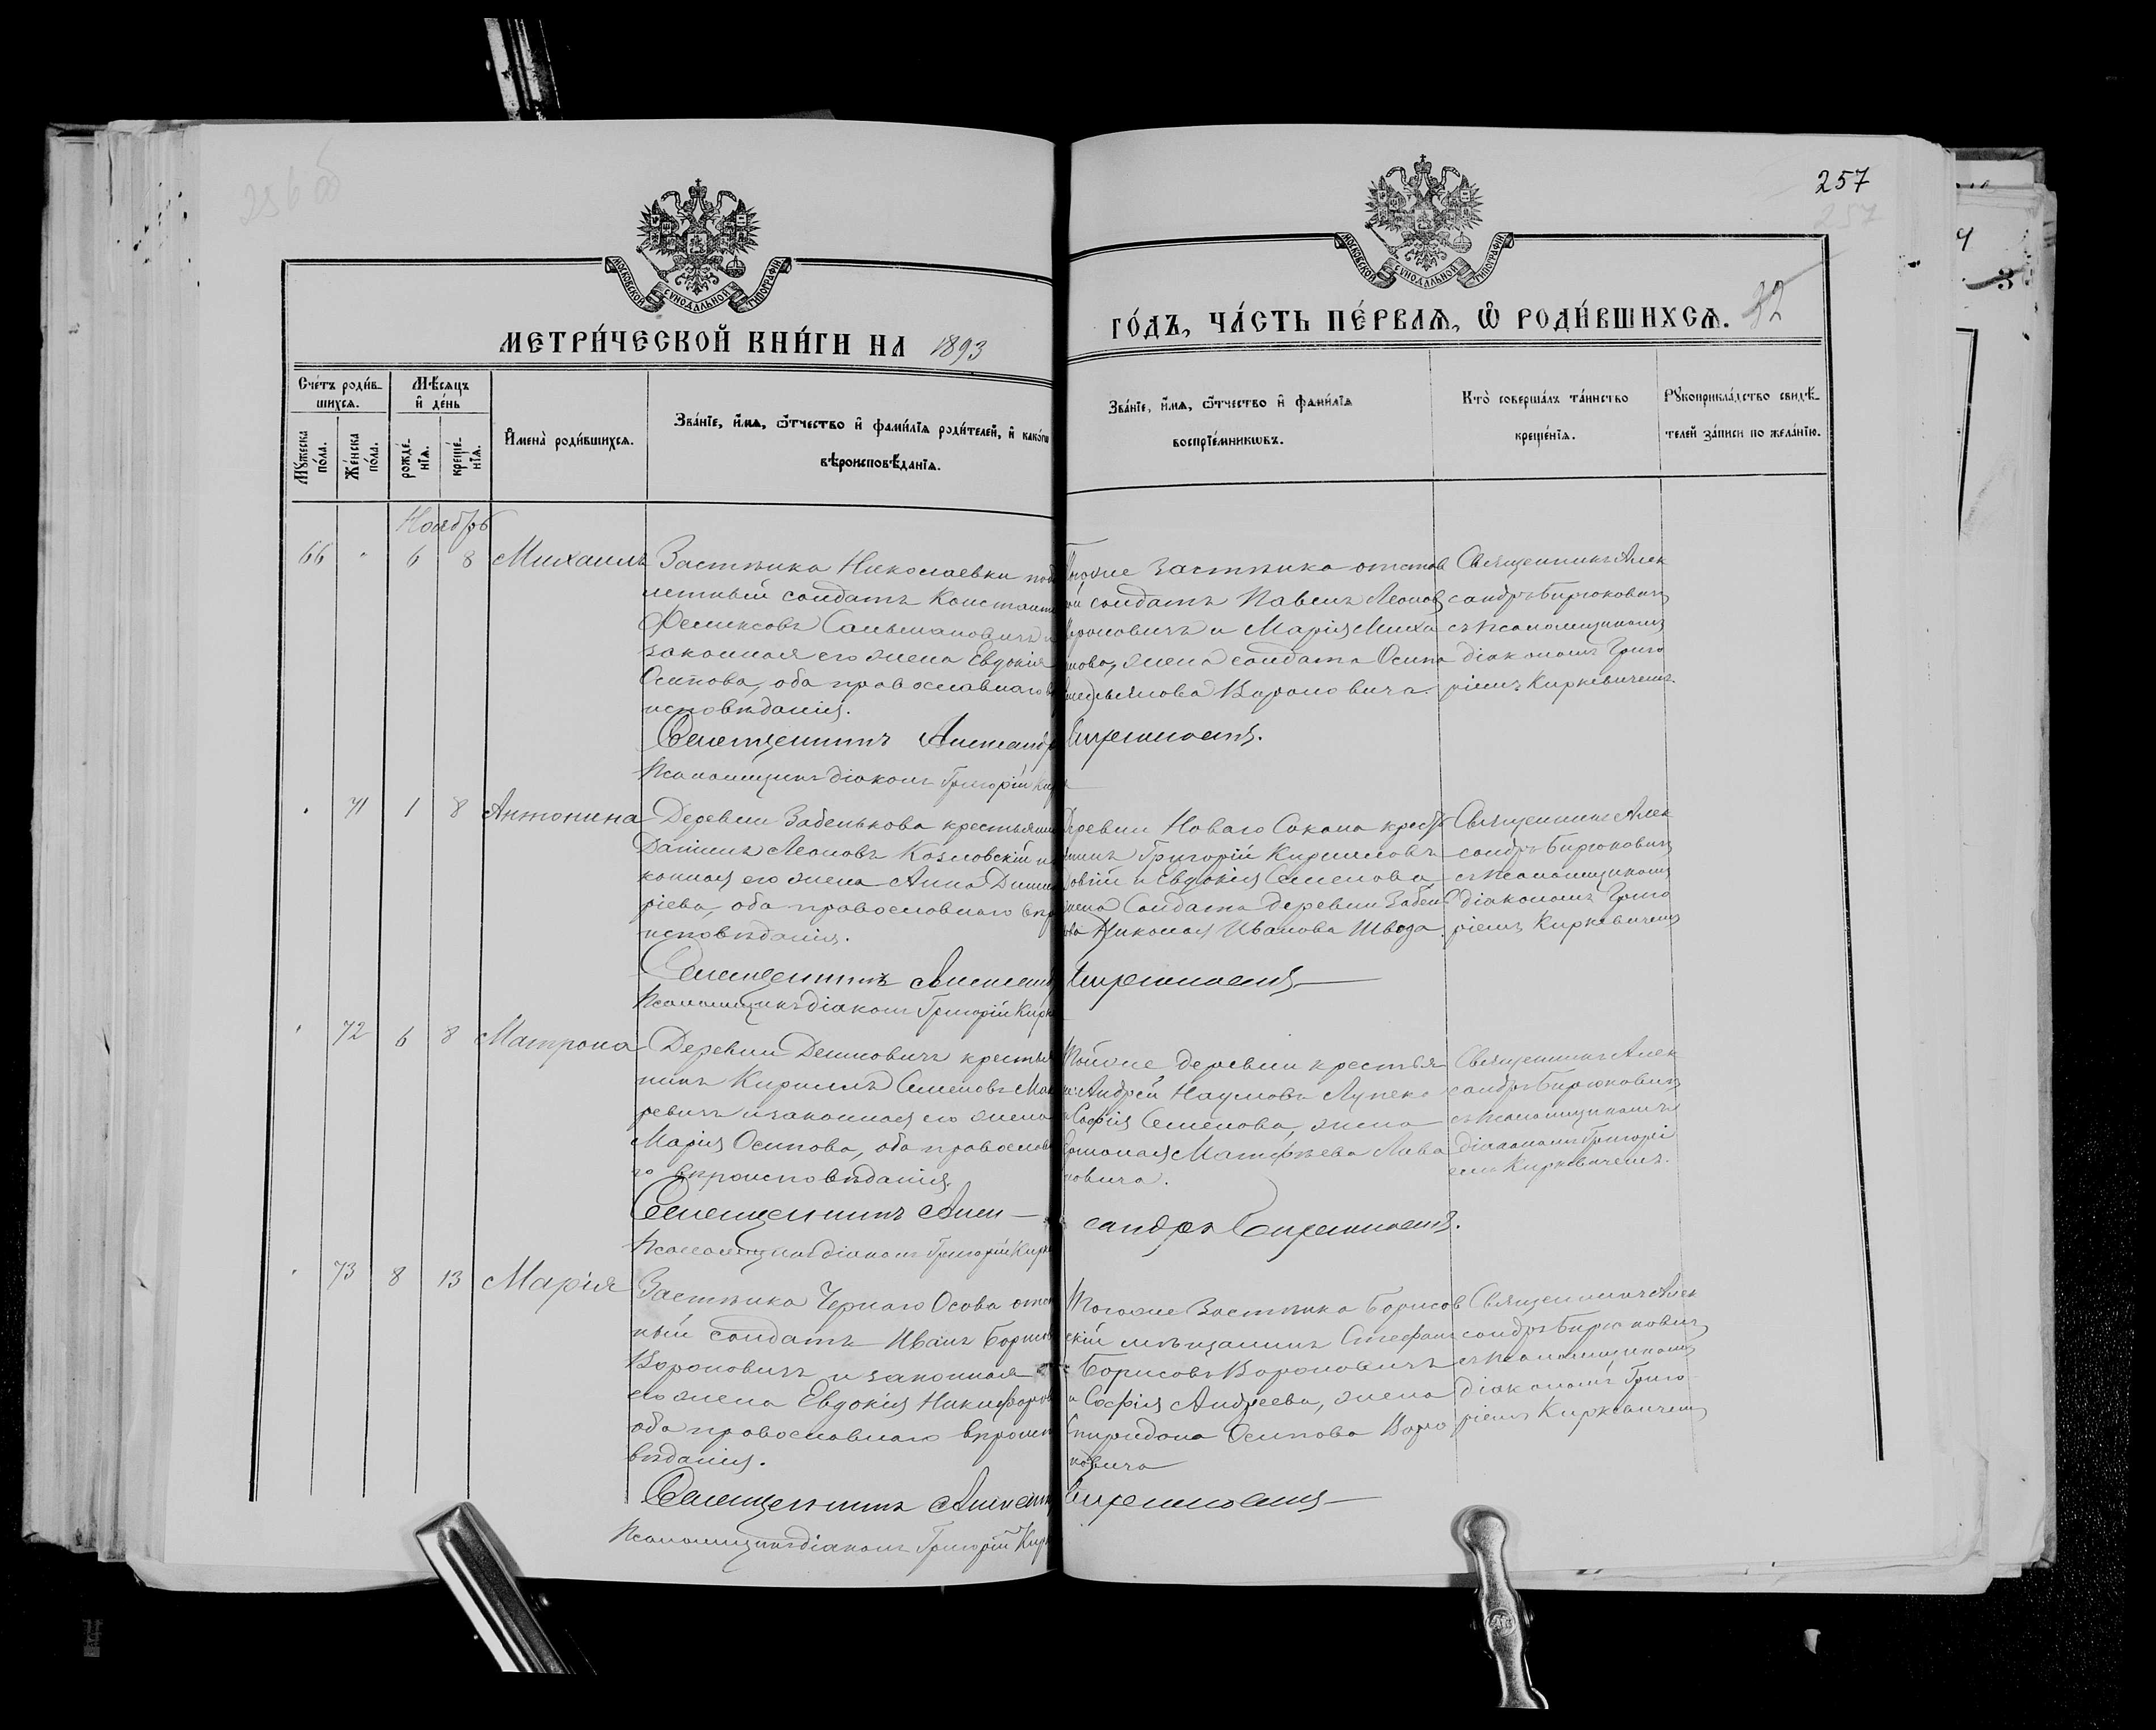 256 об
257
257
МОСКОВСКОЙ СУНОДАЛЬНОЙ ТИПОГРАФІИ
МОСКОВСКОЙ СУНОДАЛЬНОЙ ТИПОГРАФІИ
МЕТРИ́ЧЕСКОЙ КНИ́ГИ НА 1893
ГО́ДЪ, ЧА́СТЬ ПЕ́РВАѦ, Ѽ РОДИ́ВШИХСѦ. 32
Сче́тъ роди́в-
шихсѧ.
Мꙋ́жеска по́ла.
Же́нска по́ла.
Мѣ́сѧцъ
и҆ де́нь
рожде́-нїѧ.
креще́-нїѧ.
И҆мена̀ роди́вшихсѧ.
Зва́нїе, и҆́мѧ, ѻ҆́тчество и҆ фами́лїѧ роди́телей, и҆ како́гѡ
вѣроисповѣ́данїѧ.
Зва́нїе, и҆́мѧ, ѻ҆́тчество и҆ фами́лїѧ
воспрїе́мникѡвъ.
Кто̀ соверша́лъ та́инство
креще́нїѧ.
Рꙋкоприкла́дство свидѣ́-
телей за́писи по жела́нїю.
Ноябрь
66 " 6 8 Михаилъ
Застѣнка Николаевки
солдатъ Констант
Феликсовъ
законная его жена Евдокія
Осипова, оба православнаго в
исповѣданія.
Священникъ Александр
Псаломщикъ діаконъ Григорій Кирк
Тогоже застѣнка отстав
ой солдатъ Павелъ Леонов
Вороновичъ и Марія Миха
лова, жена солдата Осипа
Вороновича.
Бирюковичъ.
Священникъ Алек
сандръ Бирюковичъ
съ псаломщикомъ
діакономъ Григо
ріемъ Киркевичемъ.
" 71 1 8 Антонина
Деревни Забенькова крестьянин
Даніилъ Леоновъ Козловскій и
конная его жена Анна Димит
ріева, оба православнаго вѣро
исповѣданія.
Священникъ Александ
Псаломщикъ діаконъ Григорій Кирк
Деревни Новаго Сокола крестья
нинъ Григорій Кирилловъ
и Евдокія Семенова
жена Солдата деревни Забень
кова Николая Иванова Шведа.
Бирюковичъ
Священникъ Алек
сандръ Бирюковичъ
съ псаломщикомъ
діакономъ Григо
ріемъ Киркевичемъ
" 72 6 8 Матрона
Деревни Демковичъ крестья
нинъ Кириллъ Семеновъ Мак
ревичъ и законная его жена
Марія Осипова, оба православна
го вѣроисповѣданія.
Священникъ Алек—
Псаломщикъ діаконъ Григорій Кирк
Тойже деревни крестья
нинъ Андрей Наумовъ
и Софія Семенова, жена
Матѳѣева
новича.
сандръ Бирюковичъ.
Священникъ Алек
сандръ Бирюковичъ
съ псаломщикомъ
діакономъ Григорі
емъ Киркевичемъ.
" 73 8 13 Марія
Застѣнка Чернаго Осова отст
ный солдатъ Иванъ Борисов
Вороновичъ и законная
его жена Евдокія Никифоров
оба православнаго вѣроиспо
вѣданія.
Священникъ Александ
Псаломщикъ діаконъ Григорій Кирк
Тогоже Застѣнка Борисов
скій мѣщанинъ Стефанъ
Борисовъ Вороновичъ
и Софія Андреева, жена
Спиридона Осипова Воро
новича
Бирюковичъ
Священникъ Алек
сандръ Бирюковичъ
съ псаломщикомъ
діакономъ Григо
ріемъ Киркевичемъ